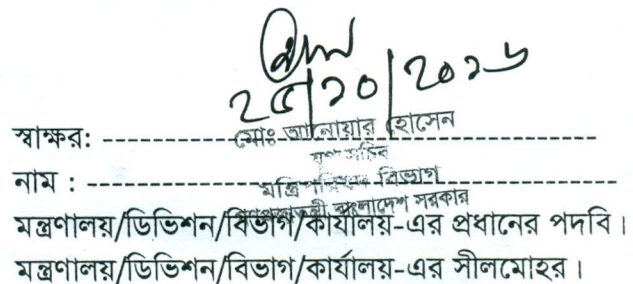 ২৫/১০/২০১৬
স্বাক্ষর: মোঃ আনোয়ার হোসেন
যুগ্ম সচিব
নাম : মন্ত্রিপরিষদ বিভাগ
গণপ্রজাতন্ত্রী বাংলাদেশ সরকার
মন্ত্রণালয়/ডিভিশন/বিভাগ/কার্যালয়-এর প্রধানের পদবি।
মন্ত্রণালয়/ডিভিশন/বিভাগ/কার্যালয়-এর সীলমোহর।